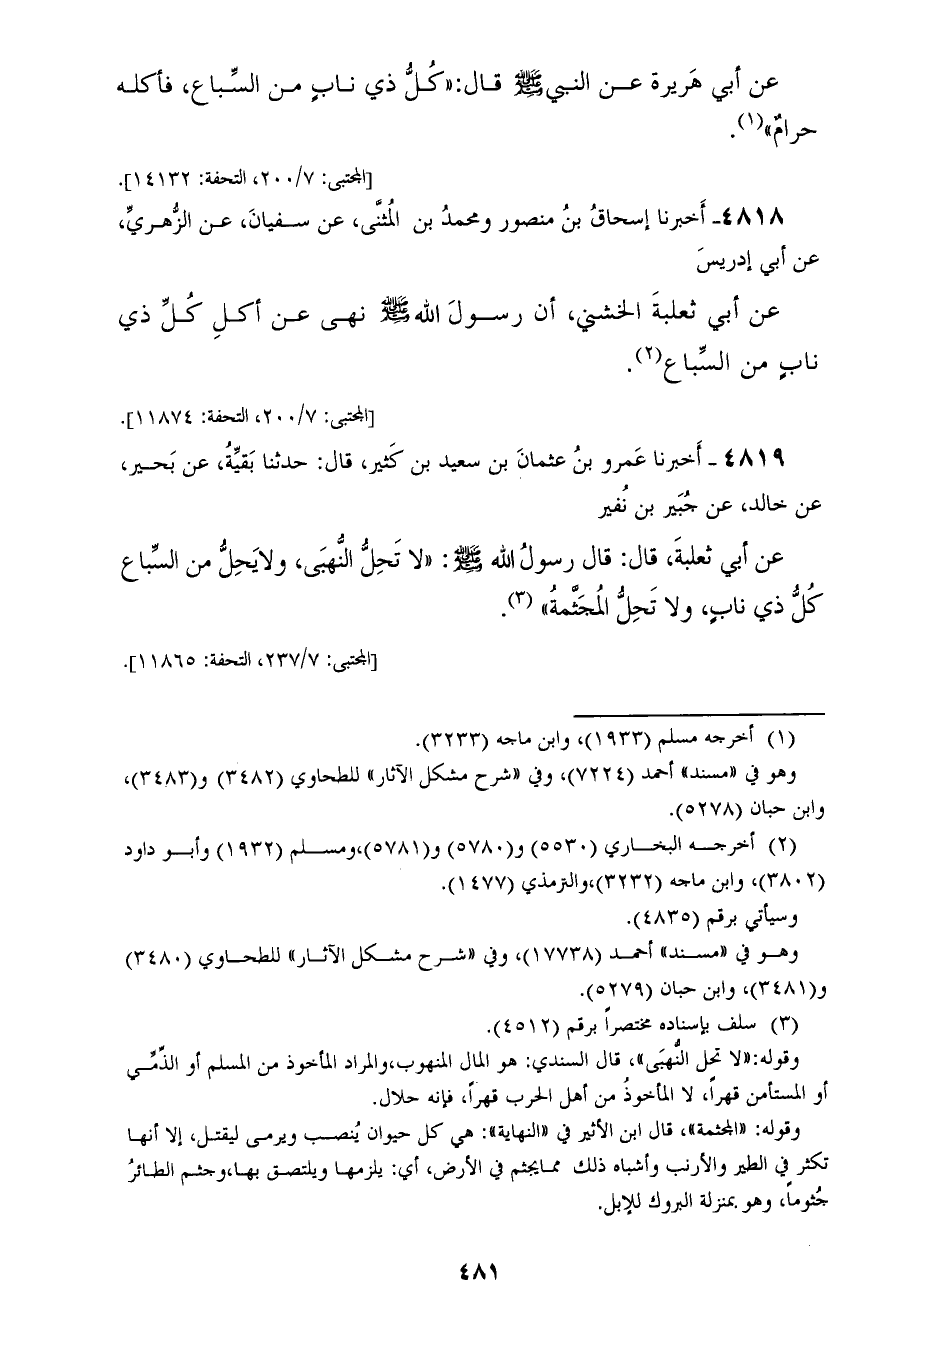 عن أبي هَريرة عـن النبيﷺ قـال:«كُلُّ ذي نـابٍ مـن السِّباع، فأكلـه
حرامٌ»(١).
[المجتبى: ٢٠٠/٧، التحفة: ١٤١٣٢].
٤٨١٨ـ أَخبرنا إسحاقُ بنُ منصور ومحمدُ بن المُثنَّى، عن سـفيانَ، عـن الزُّهـريِّ،
عن أبي إدريسَ
عن أبي ثعلبةَ الخشني، أن رسـولَ اللهﷺ نهـى عـن أكـلِ كُـلِّ ذي
نابٍ من السِّباع(٢).
[المجتبى: ٢٠٠/٧، التحفة: ١١٨٧٤].
٤٨١٩ ـ أَخبرنا عَمرو بنُ عثمانَ بن سعيد بن كَثير، قال: حدثنا بَقيَّةُ، عن بَحـير،
عن خالد، عن جُبَير بن نُفير
عن أبي ثعلبةَ، قال: قال رسولُ الله ﷺ: «لا تَحِلُّ النُّهبَى، ولايَحِلُّ من السِّباع
كُلُّ ذي نابٍ، ولا تَحِلُّ المُجَثَّمةُ» (٣).
[المجتبى: ٢٣٧/٧، التحفة: ١١٨٦٥].
(١) أخرجه مسلم (١٩٣٣)، وابن ماجه (٣٢٣٣).
وهو في «مسند» أحمد (٧٢٢٤)، وفي «شرح مشكل الآثار» للطحاوي (٣٤٨٢) و(٣٤٨٣)،
وابن حبان (٥٢٧٨).
(٢) أخرجـه البخـاري (٥٥٣٠) و(٥٧٨٠) و(٥٧٨١)،ومسـلم (١٩٣٢) وأبـو داود
(٣٨٠٢)، وابن ماجه (٣٢٣٢)،والترمذي (١٤٧٧).
وسيأتي برقم (٤٨٣٥).
وهـو في «مسـند» أحمـد (١٧٧٣٨)، وفي «شـرح مشـكل الآثـار» للطحـاوي (٣٤٨٠)
و(٣٤٨١)، وابن حبان (٥٢٧٩).
(٣) سلف بإسناده مختصراً برقم (٤٥١٢).
وقوله:«لا تحل النُّهبَى»، قال السندي: هو المال المنهوب،والمراد المأخوذ من المسلم أو الذِّمِّي
أو المستأمن قهراً، لا المأخوذُ من أهل الحرب قهراً، فإنه حلال.
وقوله: «المجثمة»، قال ابن الأثير في «النهاية»: هي كل حيوان يُنصب ويرمى ليقتل، إلا أنهـا
تكثر في الطير والأرنب وأشباه ذلك ممايجثم في الأرض، أي: يلزمها ويلتصق بها،وجثم الطائرُ
جُثوماً، وهو بمنزلة البروك للإبل.
٤٨١